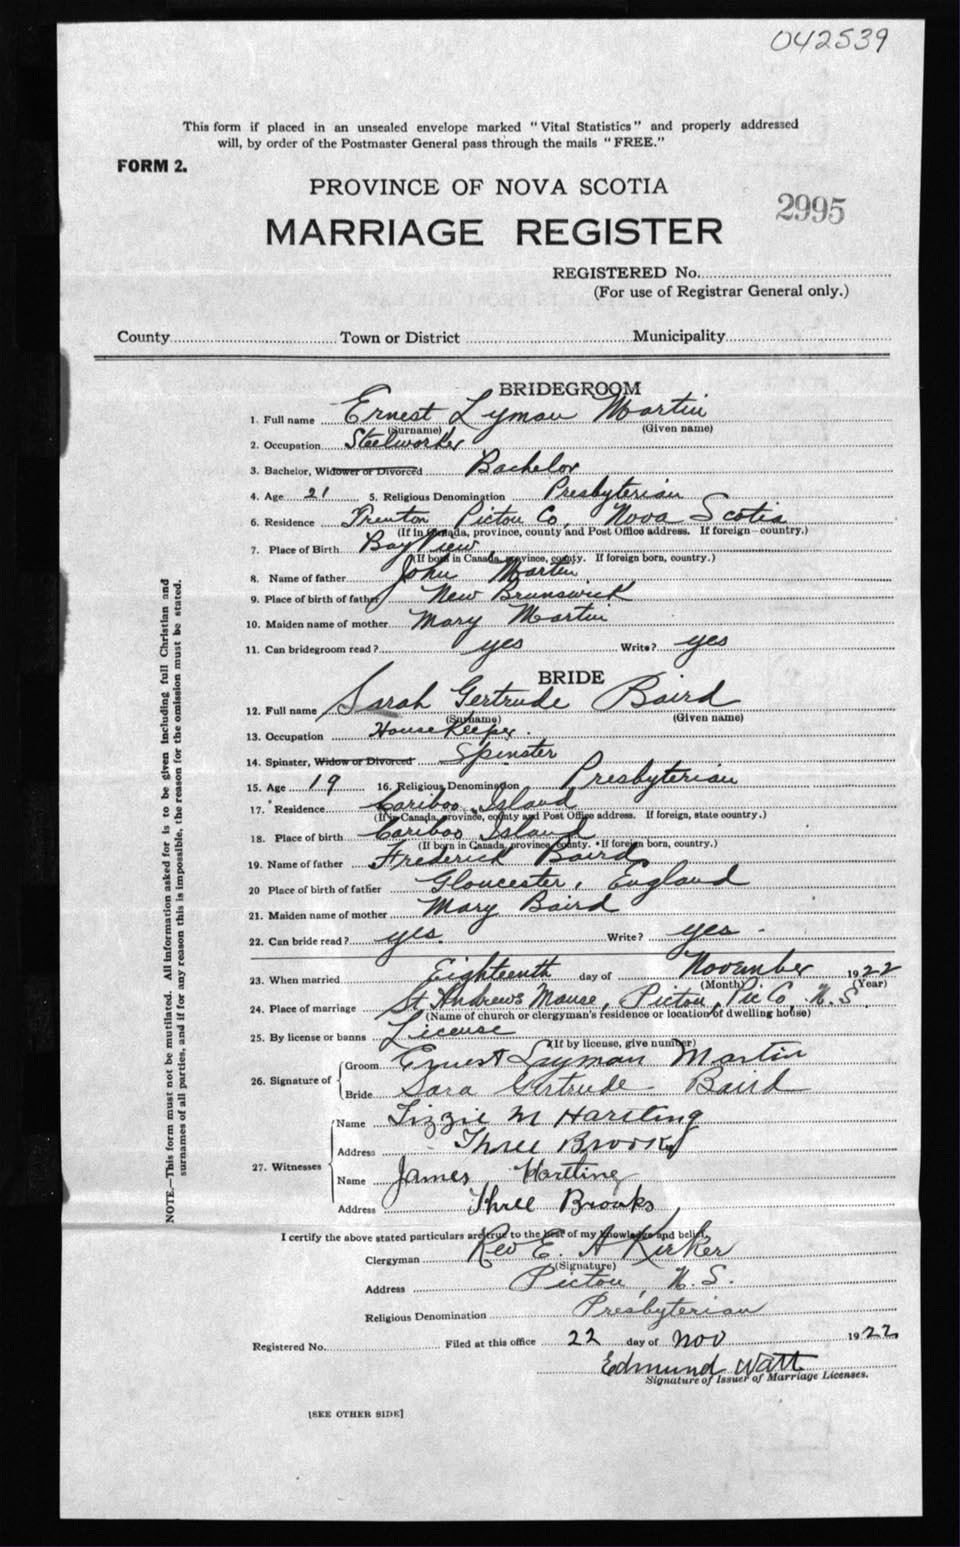 042539
This form if placed in an unsealed envelope marked "Vital Statistics" and properly addressed
will, by order of the Postmaster General pass through the mails "FREE."
FORM 2.
PROVINCE OF NOVA SCOTIA
2995
MARRIAGE REGISTER
REGISTERED No.
(For use of Registrar General only.)
County Town or District Municipality
BRIDEGROOM
1. Full name Ernest Lyman Martin
(Surname) (Given name)
2. Occupation Steelworker
3. Bachelor, Widower or Divorced Bachelor
4. Age 21 5. Religious Denomination Presbyterian
6. Residence Trenton Pictou Co, Nova Scotia
(If in Canada, province, county and Post Office address. If foreign—country.)
7. Place of Birth Bay View
(If born in Canada, province, county. If foreign born, country.)
8. Name of father John Martin
9. Place of birth of father New Brunswick
10. Maiden name of mother Mary Martin
11. Can bridegroom read? yes Write? yes
BRIDE
12. Full name Sarah Gertrude Baird
(Surname) (Given name)
13. Occupation HouseKeeper.
14. Spinster, Widow or Divorced Spinster
15. Age 19 16. Religious Denomination Presbyterian
17. Residence Cariboo Island
(If in Canada, province, county and Post Office address. If foreign, state country.)
18. Place of birth Cariboo Island
(If born in Canada, province, county. If foreign born, country.)
19. Name of father Frederick Baird
20 Place of birth of father Gloucester, England
21. Maiden name of mother Mary Baird
22. Can bride read? yes. Write? yes -
23. When married Eighteenth day of November 1922
(Month) (Year)
24. Place of marriage St Andrews Manse, Pictou, Pic Co, N. S.
(Name of church or clergyman's residence or location of dwelling house)
25. By license or banns License
(If by license, give number)
26. Signature of Groom Ernest Layman Martin
Bride Sara Gertrude Baird
27. Witnesses Name Lizzie M Hartling
Address Three Brooks
Name James Hartling
Address Three Brooks
I certify the above stated particulars are true to the best of my knowledge and belief,
Clergyman Rev E. A Kirker
(Signature)
Address Pictou, N. S.
Religious Denomination Presbyterian
Registered No. Filed at this office 22 day of Nov 1922
Edmund Watt
Signature of Issuer of Marriage Licenses.
[SEE OTHER SIDE]
NOTE.—This form must not be mutilated. All information asked for is to be given including full Christian and
surnames of all parties, and if for any reason this is impossible, the reason for the omission must be stated.